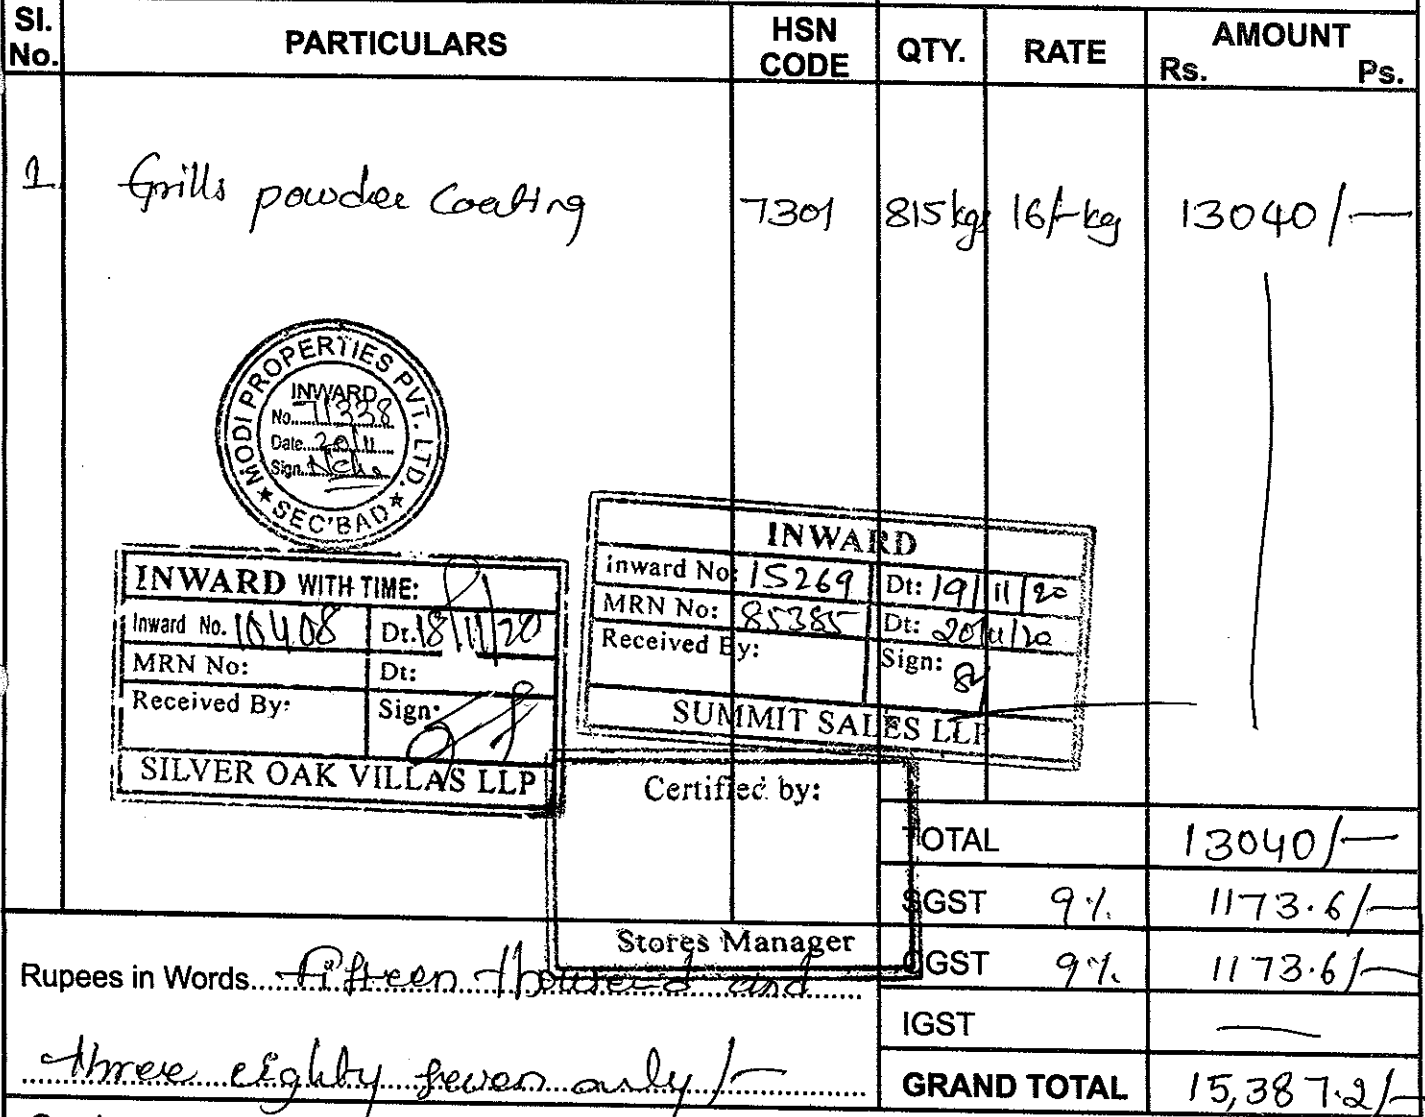 Sl. No. PARTICULARS HSN CODE QTY. RATE AMOUNT Rs. Ps.
1 Grills powder Coating 7301 815 kgs 16/- kg 13040/-
MODI PROPERTIES PVT. LTD.
INWARD
No. 71338
Date 20/11
Sign. Neha
★ SEC'BAD ★
INWARD WITH TIME:
Inward No. 10408 Dt. 18/11/20
MRN No: Dt:
Received By: Sign:
SILVER OAK VILLAS LLP
INWARD
Inward No: 15269 Dt: 19/11/20
MRN No: 85385 Dt: 20/11/20
Received By: Sign:
SUMMIT SALES LLP
Certified by:
Stores Manager
TOTAL 13040/-
SGST 9% 1173.6/-
CGST 9% 1173.6/-
IGST —
GRAND TOTAL 15,387.2/-
Rupees in Words Fifteen thousand and
three eighty seven only/-